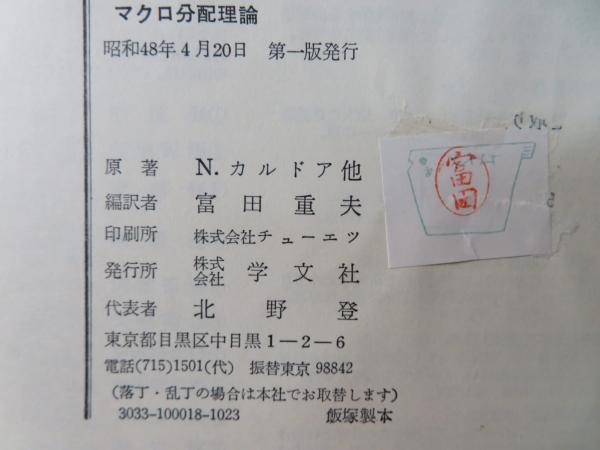 マクロ分配理論
昭和48年4月20日 第一版発行
原著 N. カルドア他
編訳者 富田重夫
印刷所 株式会社チューエツ
発行所 株式会社 学文社
代表者 北野登
東京都目黒区中目黒1―2―6
電話(715)1501(代) 振替東京 98842
(落丁・乱丁の場合は本社でお取替します)
3033-100018-1023 飯塚製本
富田